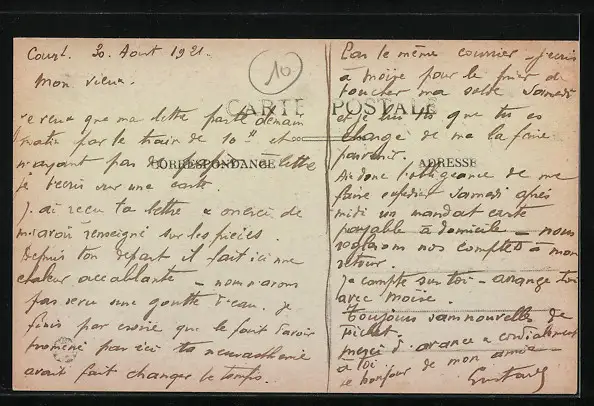 Court. 30. Aout 1921.
mon vieux.
Je veux que ma lettre parte demain
matin par le train de 10 h et
n'ayant pas de lettre
je t'ecris sur une carte.
J'ai reçu ta lettre & merci de
m'avoir renseigné sur les pièces.
Depuis ton départ il fait ici une
chaleur accablante - nous n'avons
pas revu une goutte d'eau. Je
finis par croire que le fait d'avoir
promené par ici ta neurasthénie
avait fait changer le temps.
10
CARTE POSTALE
CORRESPONDANCE
ADRESSE
Par le même courrier j'ecris
à Moise pour le prier de
toucher ma solde Samedi
et je lui dis que tu es
chargé de me la faire
parvenir.
Aie donc l'obligeance de me
faire expedier Samedi après
midi un mandat carte
payable à domicile - nous
reglerons nos comptes à mon
retour.
Je compte sur toi - arrange toi
avec Moise.
Toujours sans nouvelle de
merci d'avance & cordialement
à toi.
le bonjour de mon amie
Gustave